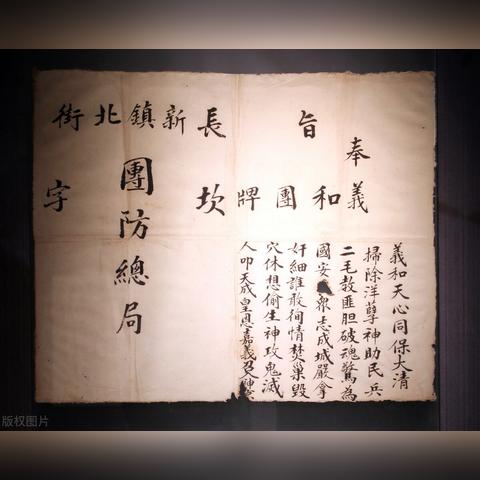 奉旨
義和團牌
義和天心同保大清
掃除洋孽神助民兵
二毛教匪胆破魂驚為
國安衆志成城嚴拿
奸細誰敢徇情焚巢毀
穴休想偷生神攻鬼滅
人叩天成皇恩嘉義
長坎
新鎮北街
團防總局
字
版权图片